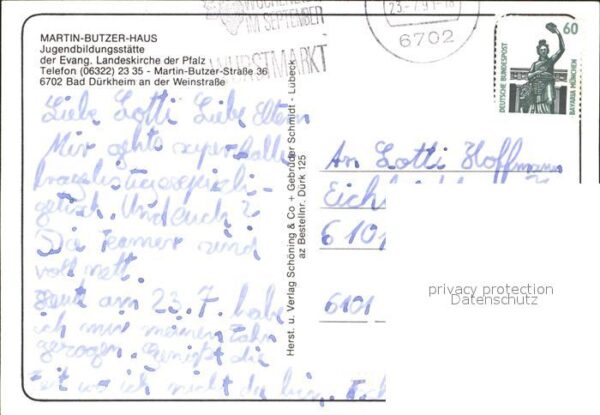 MARTIN-BUTZER-HAUS
Jugendbildungsstätte
der Evang. Landeskirche der Pfalz
Telefon (06322) 23 35 - Martin-Butzer-Straße 36
6702 Bad Dürkheim an der Weinstraße
IM SEPTEMBER
WURSTMARKT
23.-7.91-18
6702
60
DEUTSCHE BUNDESPOST
BAVARIA MÜNCHEN
Liebe Lotti Liebe Eltern
Mir gehts super
getisch. Und euch?
Die Teamer sind
voll nett.
Heute am 23.7. habe
ich mir meinen Zahn
gezogen. Genießt die
Zeit wo ich nicht da bin.
Herst. u. Verlag Schöning & Co + Gebrüder Schmidt - Lübeck
az Bestellnr. Dürk 125
An Lotti Hoffmann
Eich
6101
6101
privacy protection
Datenschutz